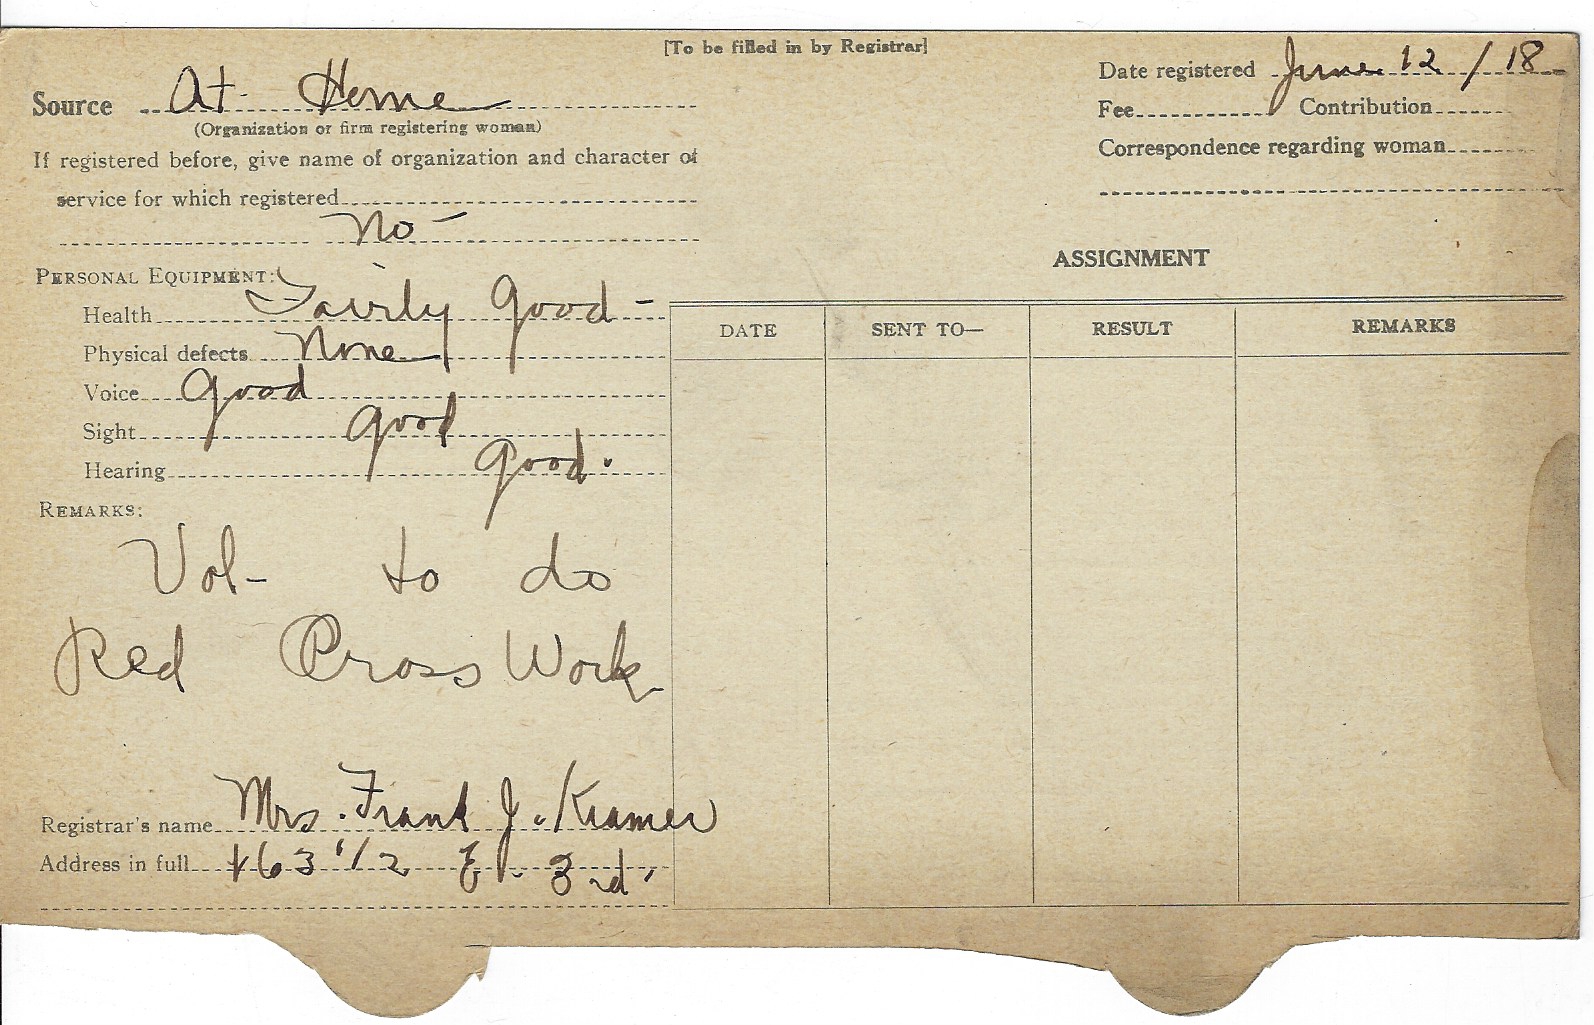 [To be filled in by Registrar]
Source At Home
(Organization or firm registering woman)
If registered before, give name of organization and character of
service for which registered
No -
PERSONAL EQUIPMENT:
Health Fairly good -
Physical defects None
Voice good
Sight good
Hearing good.
REMARKS:
Vol- to do
Red Cross Work
Registrar's name Mrs. Frank J. Kramer
Address in full 163 1/2 E. 3rd
Date registered June 12 / 18
Fee Contribution
Correspondence regarding woman
ASSIGNMENT
DATE SENT TO— RESULT REMARKS